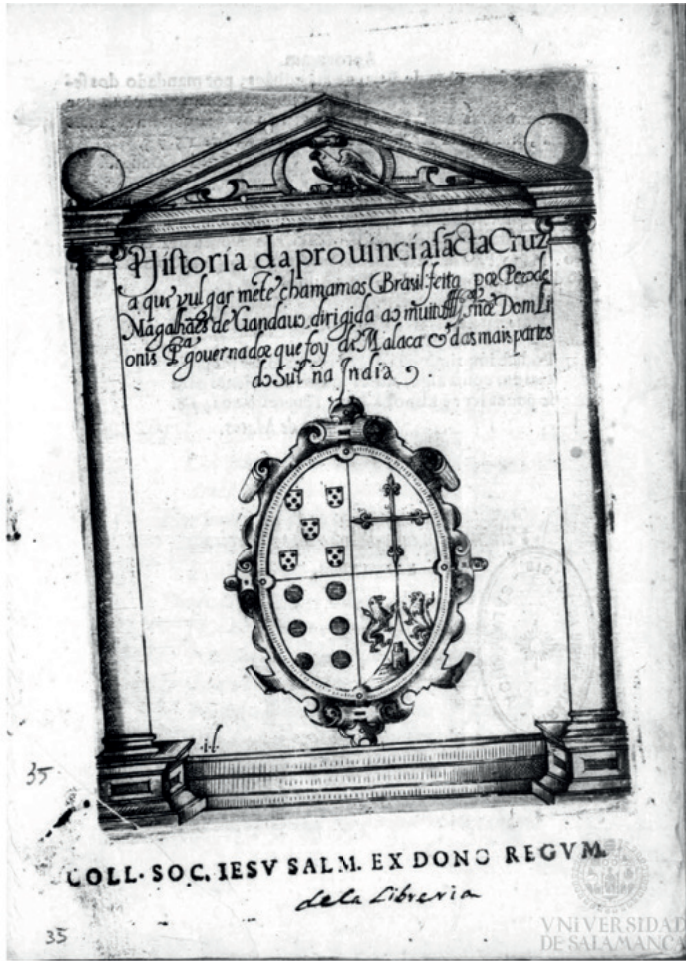 Historia da prouincia sãcta Cruz
a qui vulgar mẽte chamamos Brasil feita por Pero de
Magalhães de Gandauo, dirigida ao muito Illsre sñor Dom Li
onis Pra gouernador que foy de Malaca & das mais partes
do Sul na India.
35
COLL. SOC. IESV SALM. EX DONO REGVM.
dela Libreria
35
VNiVERSIDAD
DE SALAMANCA